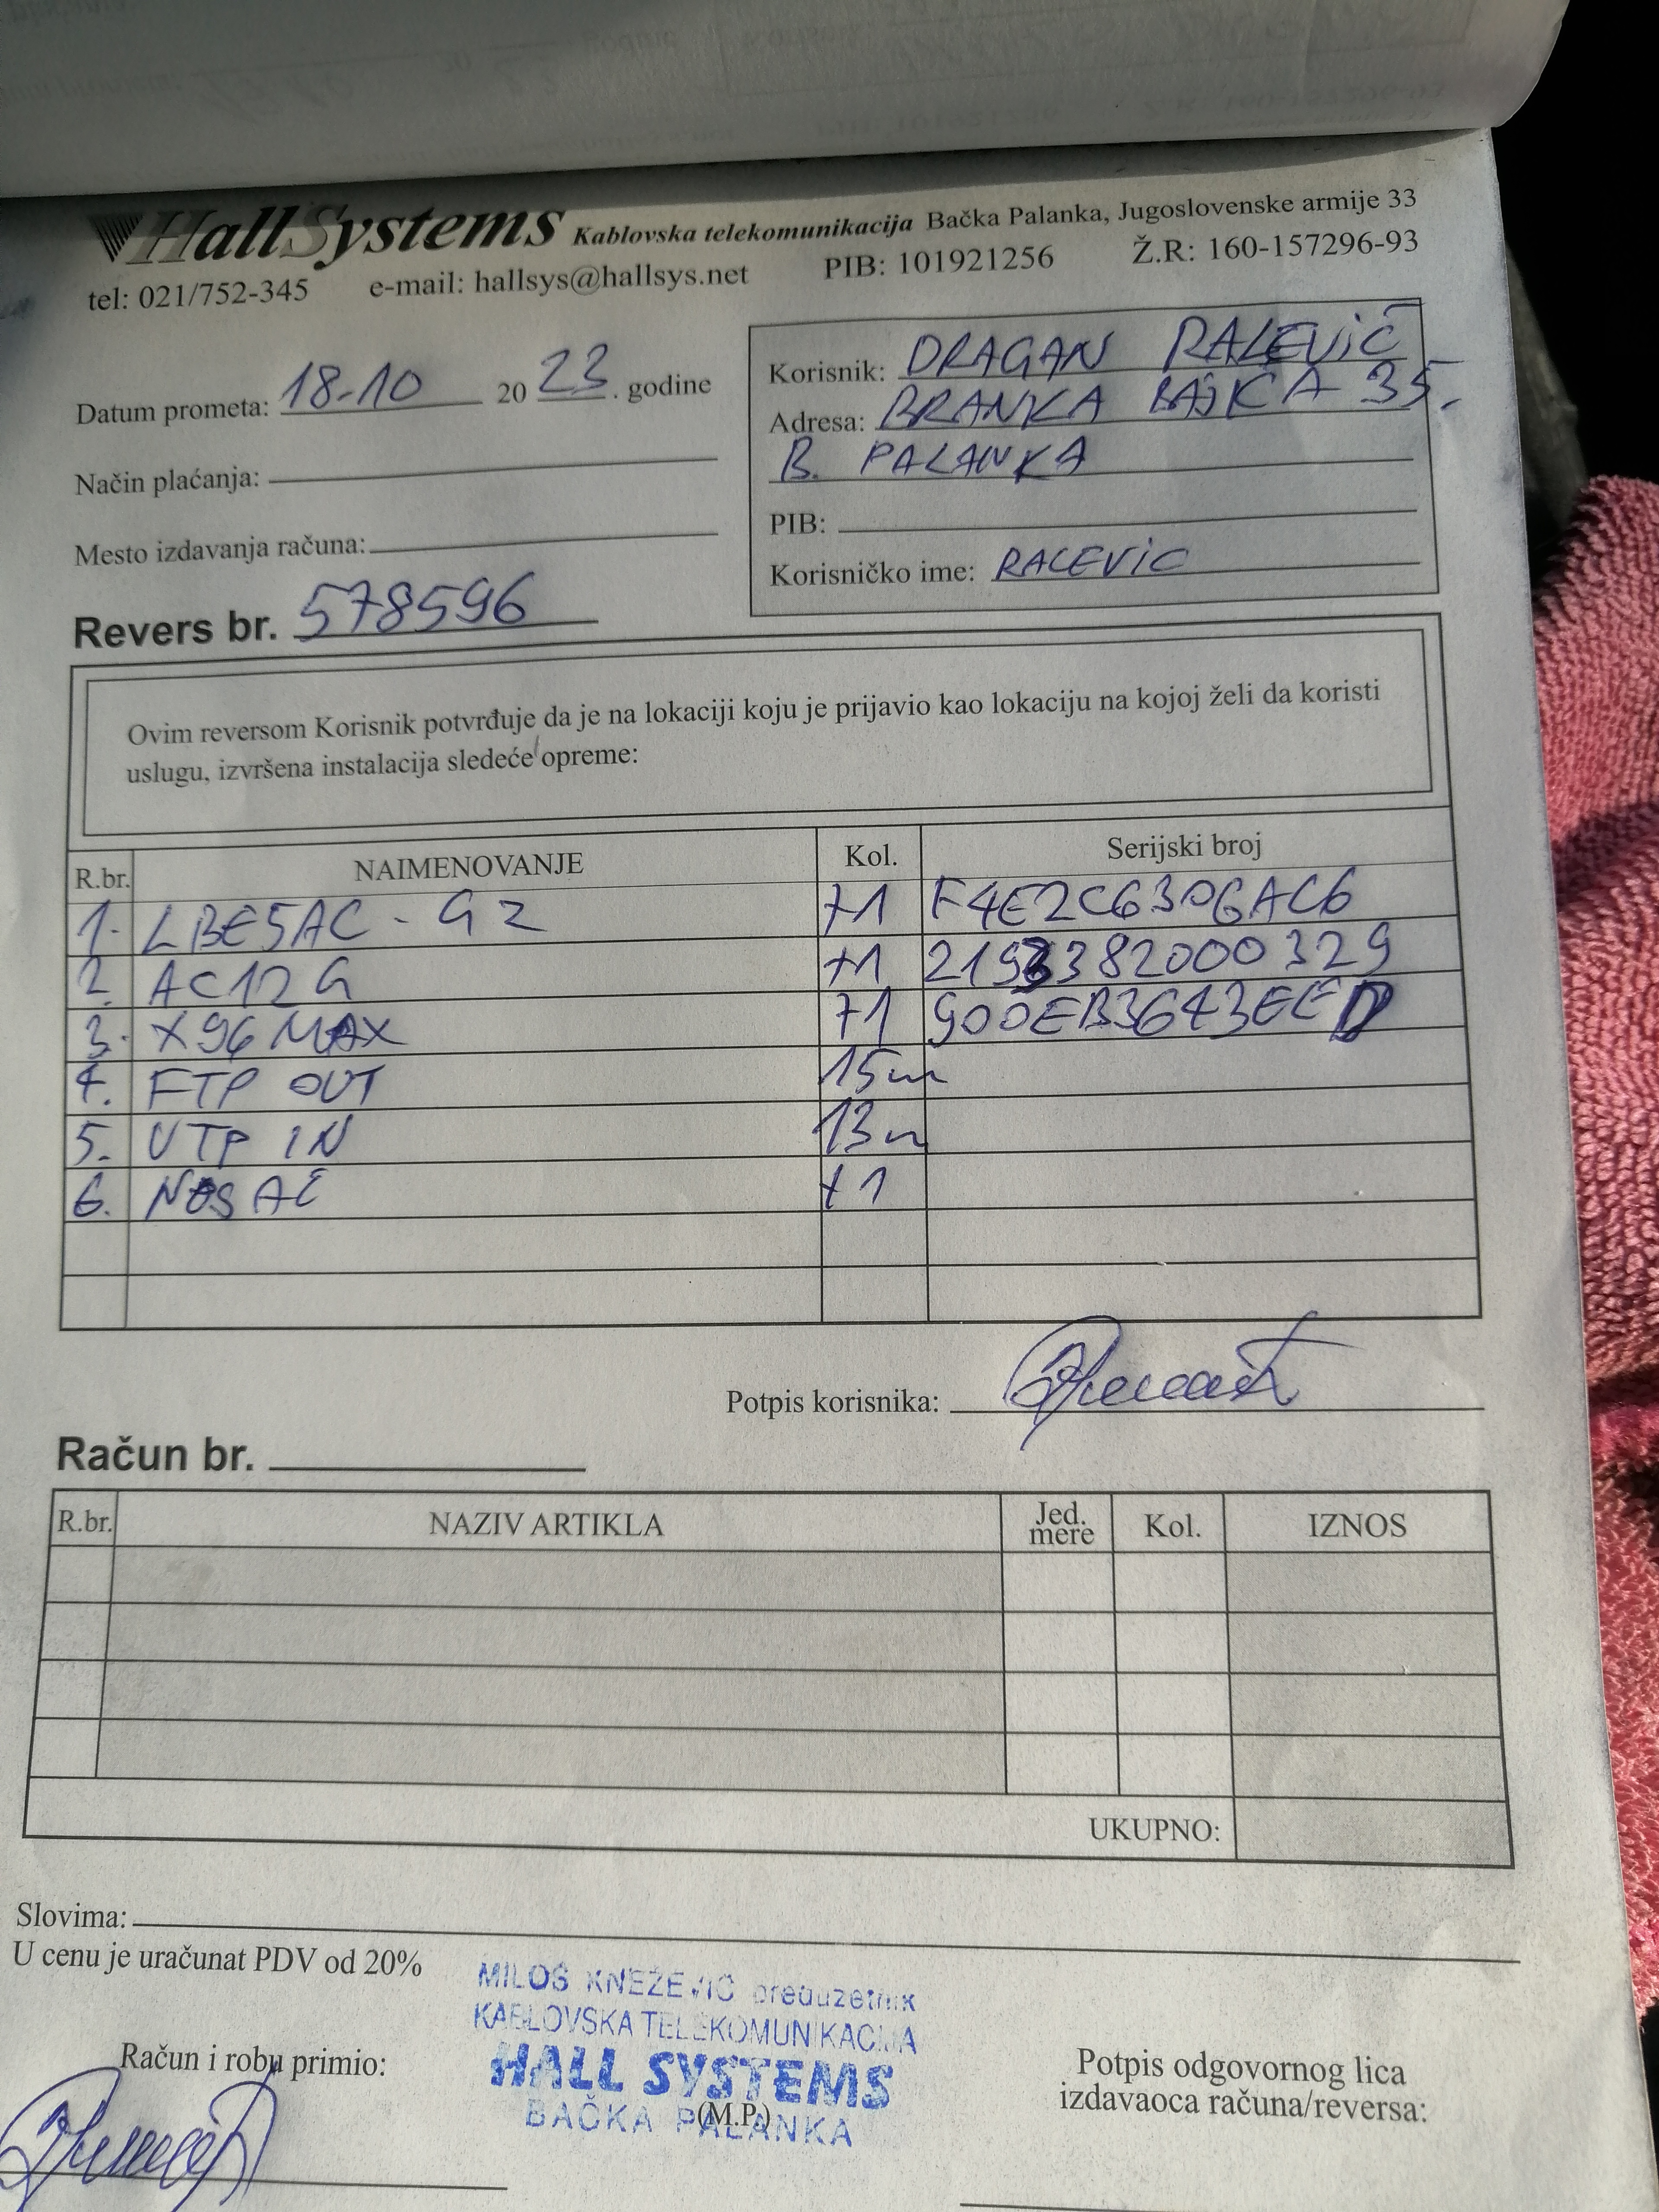 HallSystems Kablovska telekomunikacija Bačka Palanka, Jugoslovenske armije 33
tel: 021/752-345 e-mail: hallsys@hallsys.net PIB: 101921256 Ž.R: 160-157296-93
Datum prometa: 18-10 2023. godine
Način plaćanja:
Mesto izdavanja računa:
Revers br. 578596
Korisnik: DRAGAN RALEVIĆ
Adresa: BRANKA BAJKA 35.
B. PALANKA
PIB:
Korisničko ime: RALEVIC
Ovim reversom Korisnik potvrđuje da je na lokaciji koju je prijavio kao lokaciju na kojoj želi da koristi
uslugu, izvršena instalacija sledeće opreme:
R.br. NAIMENOVANJE Kol. Serijski broj
1. LBE5AC - G2 +1 F4E2C6306AC6
2. AC12G +1 2193382000329
3. X96 MAX +1 900EB3643EED
4. FTP OUT 15m
5. UTP IN 13m
6. NOSAČ +1
Potpis korisnika:
Račun br.
R.br. NAZIV ARTIKLA Jed. mere Kol. IZNOS
UKUPNO:
Slovima:
U cenu je uračunat PDV od 20%
MILOŠ KNEŽEVIĆ preduzetnik
KABLOVSKA TELEKOMUNIKACIJA
HALL SYSTEMS
BAČKA PALANKA
Račun i robu primio:
(M.P.)
Potpis odgovornog lica
izdavaoca računa/reversa: